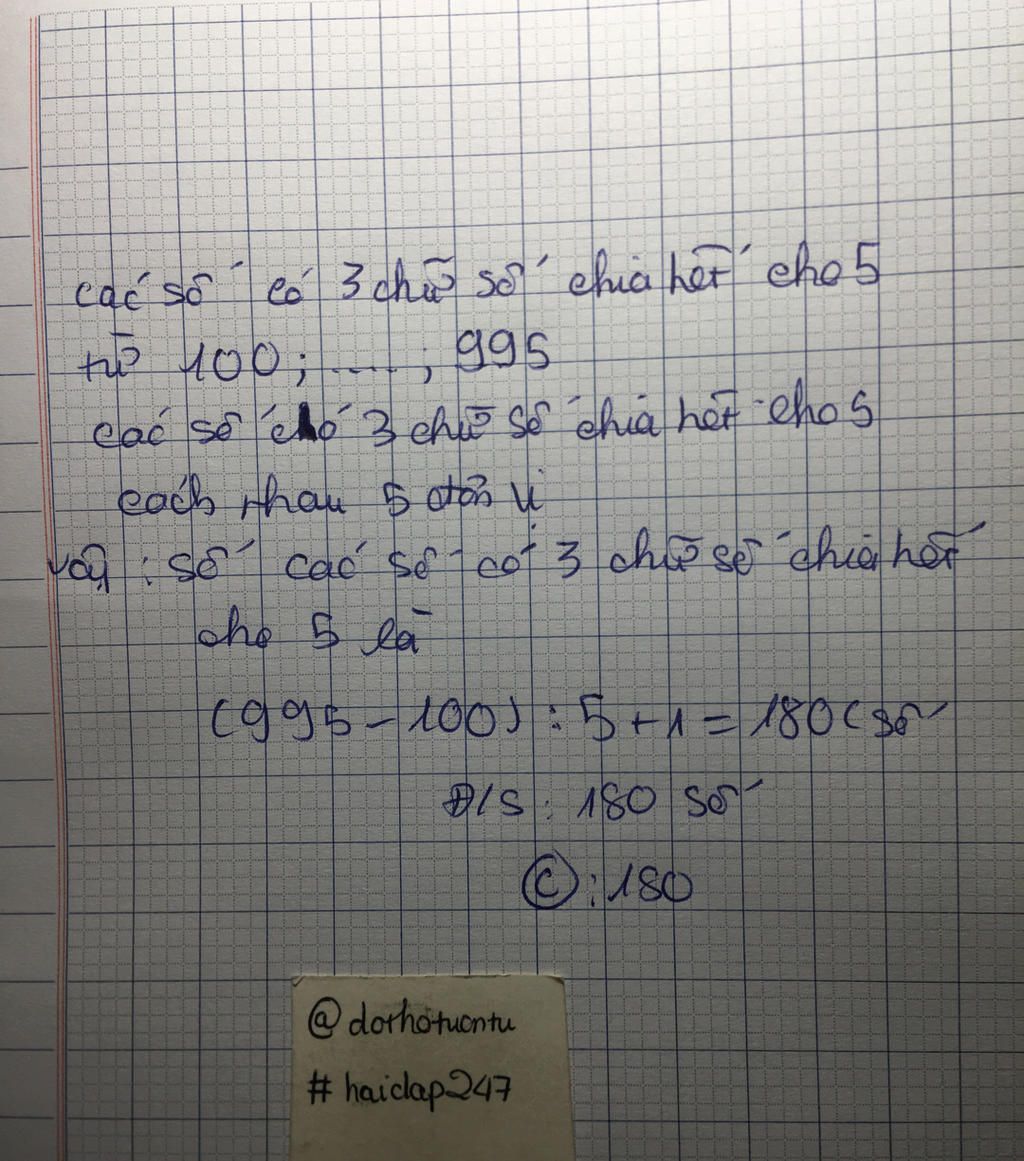 các số có 3 chữ số chia hết cho 5
từ 100; ....; 995
các số có 3 chữ số chia hết cho 5
cách nhau 5 đơn vị
vậy : số các số có 3 chữ số chia hết
cho 5 là
(995 - 100) : 5 + 1 = 180 (số
Đ/S : 180 số
C : 180
@dorhotuontu
# haidap247